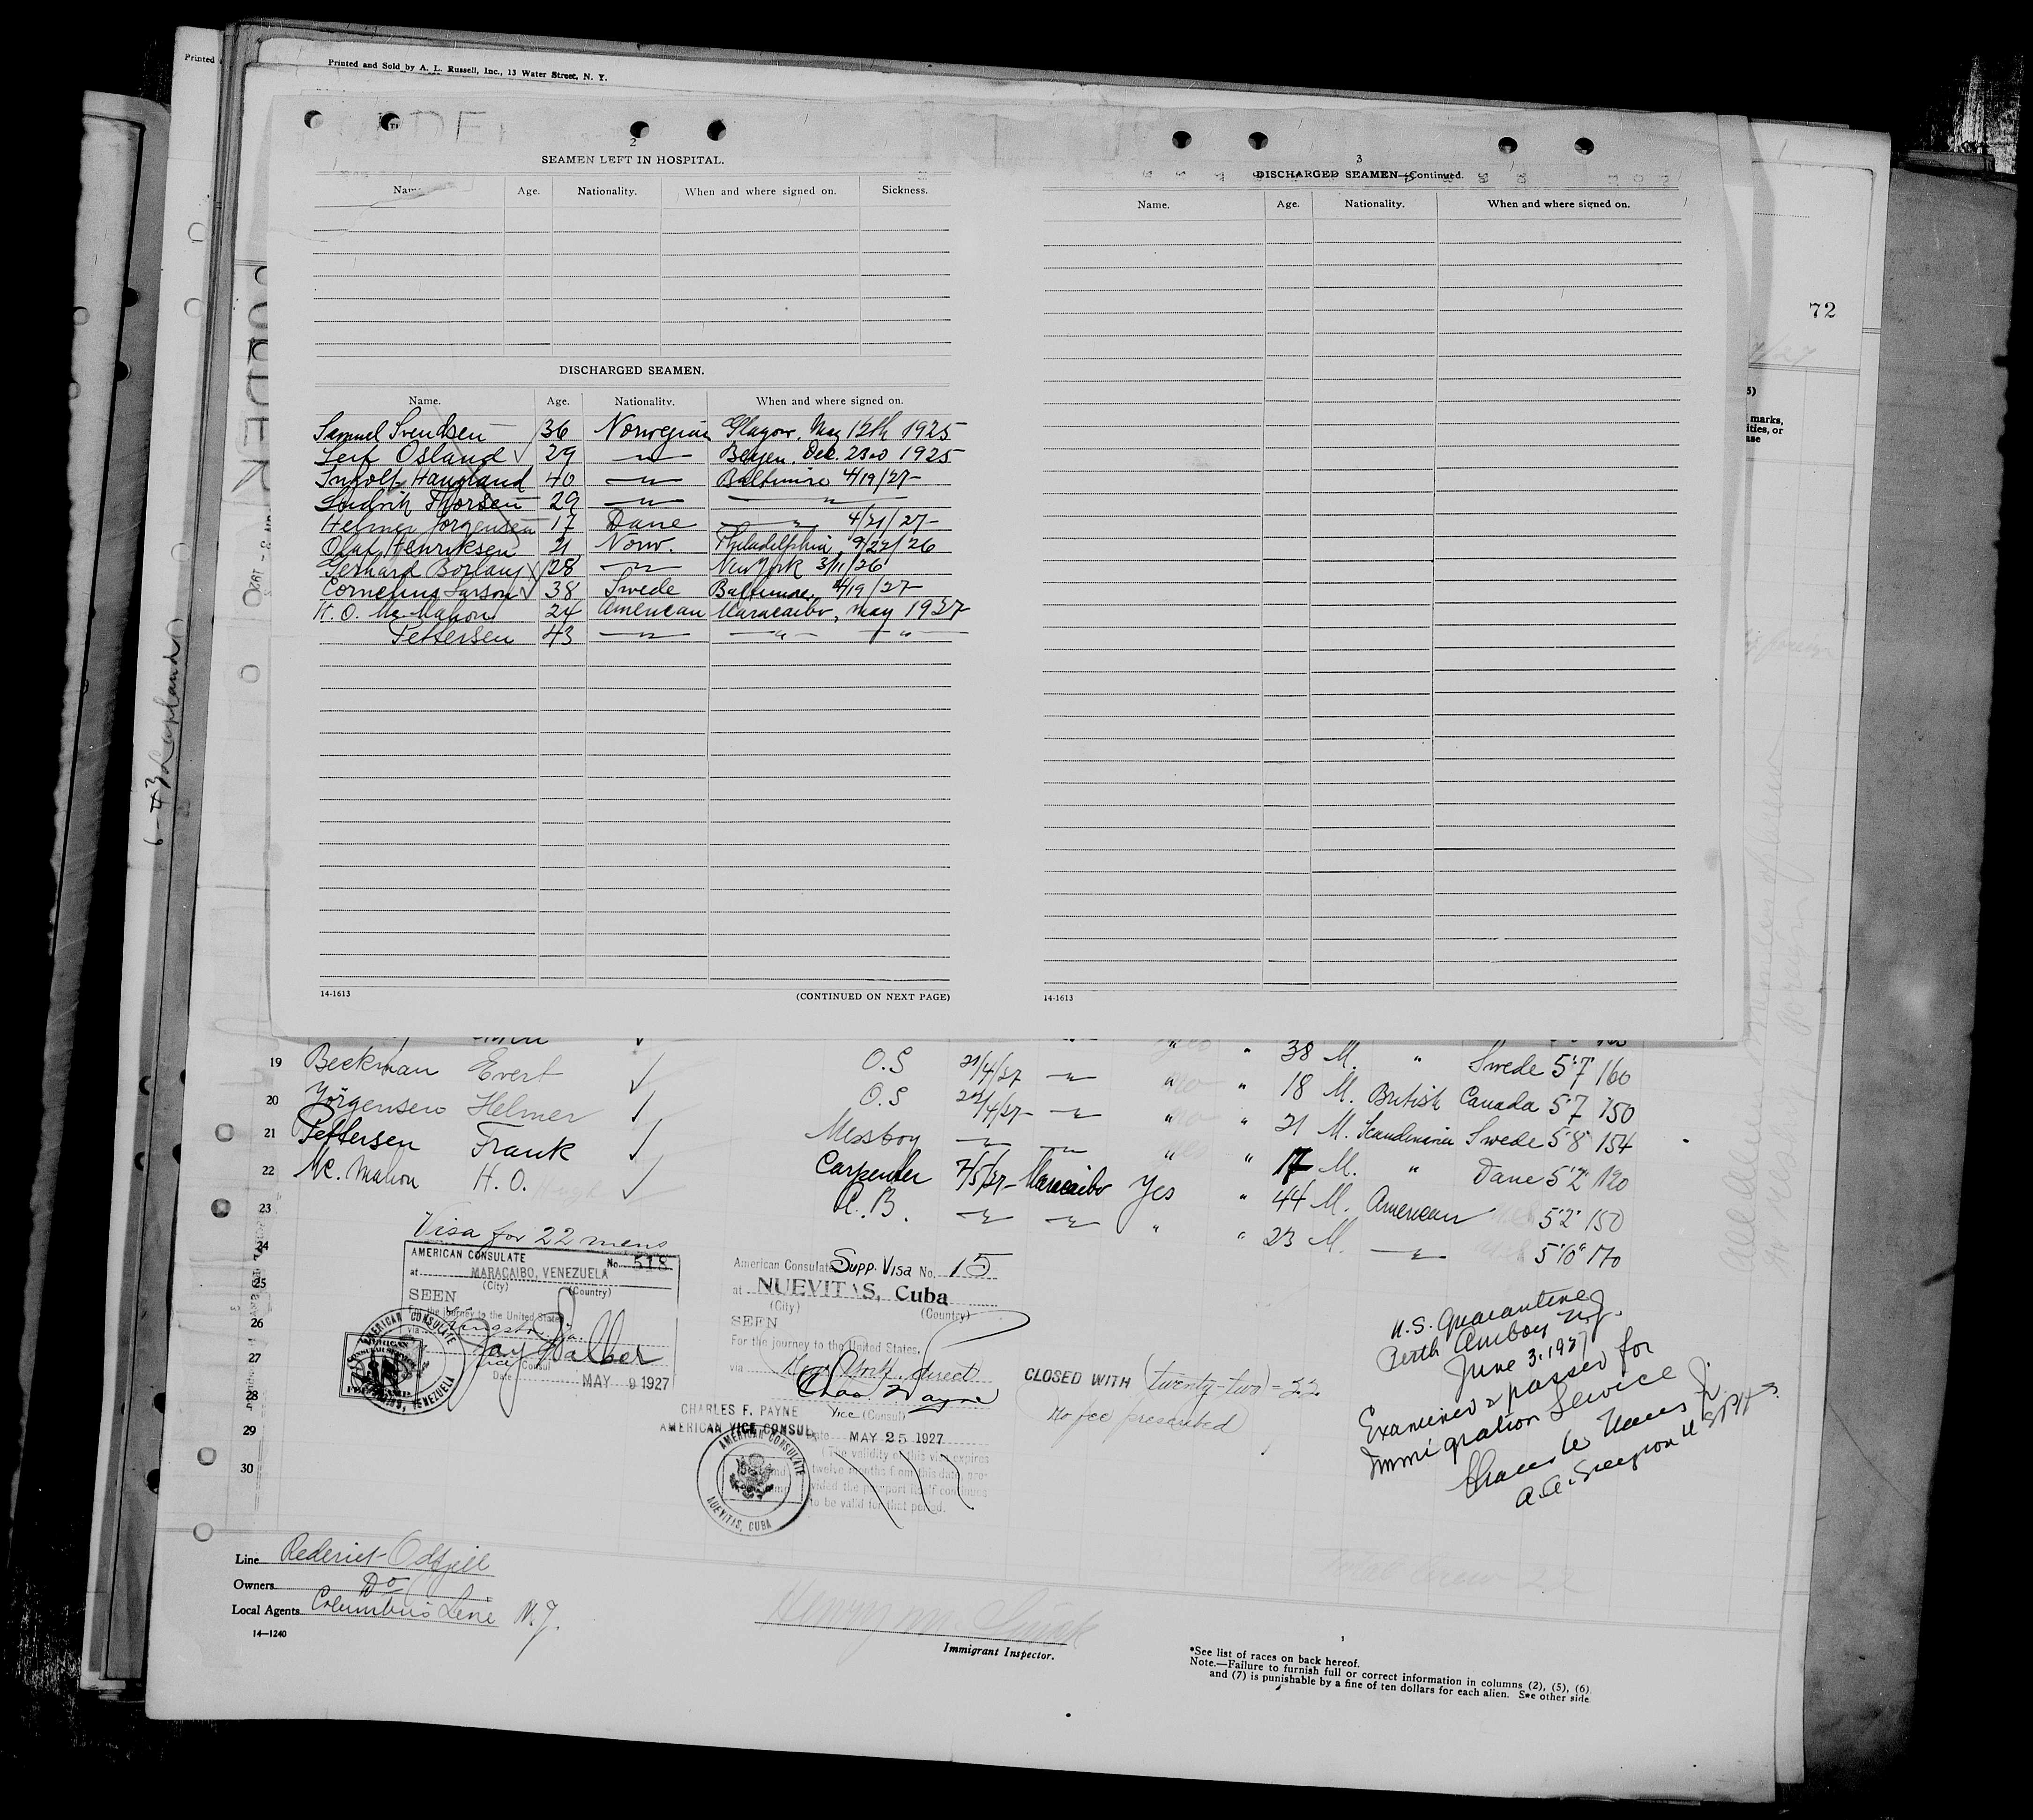 Printed
Printed and Sold by A. L. Russell, Inc., 13 Water Street, N. Y.
2
SEAMEN LEFT IN HOSPITAL.
Name. Age. Nationality. When and where signed on. Sickness.
DISCHARGED SEAMEN.
Name. Age. Nationality. When and where signed on.
Samuel Svendsen 36 Norwegian Glasgow, May 12th 1925
Leif Osland 29 —"— Bergen. Dec. 23rd 1925
Ingolf Haugland 40 —"— Baltimore 4/19/27
Thorsen 29 —"— —"—
Helmer Jorgensen 17 Dane —"— 4/21/27
Olaf Henriksen 21 Norw. Philadelphia, 9/22/26
Gerhard Borlaug 28 —"— New York 3/11/26
Cornelius Larson 38 Swede Baltimore, 4/19/27
H. O. Mc Mahon 24 American Maracaibo, May 1927
Pettersen 43 —"— —"— —"—
14-1613
(CONTINUED ON NEXT PAGE)
3
DISCHARGED SEAMEN—Continued.
Name. Age. Nationality. When and where signed on.
14-1613
72
marks,
ities, or
ase
6-43 Lapland
19 Beckman Evert O.S 21/4/27 —"— " " 38 M. " Swede 5'7 160
20 Jörgensen Helmer O.S 22/4/27 —"— " no " 18 M. British Canada 5'7 150
21 Pettersen Frank Messboy —"— —"— " no " 21 M. Scandinavia Swede 5'8 154
22 Mc. Mahon H. O. Hugh Carpenter 7/5/27 Maracaibo Yes " 17 M. " Dane 5'2 120
23 A. B. —"— —"— " " 44 M. American 5'2" 150
24 " 23 M. —"— 5'10" 170
25
26
27
28
29
30
Visa for 22 mens
AMERICAN CONSULATE No. 518
at MARACAIBO, VENEZUELA
(City) (Country)
SEEN
For the journey to the United States
via Kingston, Ja.
Jay Walker
Vice Consul
Date MAY 9 1927
AMERICAN CONSULATE
American Consulate Supp. Visa No. 15
at NUEVITAS, Cuba
(City) (Country)
SEEN
For the journey to the United States,
via New York, direct
Chas F Payne
Vice (Consul)
CHARLES F. PAYNE
AMERICAN VICE CONSUL
Date MAY 25 1927
(The validity of this visa expires
twelve months from this date, pro-
vided the passport itself continues
to be valid for that period.
AMERICAN CONSULATE
NUEVITAS, CUBA
CLOSED WITH (twenty-two) = 22
No fee prescribed
U.S. Quarantine
Perth Amboy N.J.
June 3, 1927
Examined & passed for
Immigration Service
A. A. Surgeon U S P H S
Line Rederiet Odfjell
Owners Do
Local Agents Columbus Line N.Y.
14—1240
Total Crew 22
Immigrant Inspector.
*See list of races on back hereof.
Note.—Failure to furnish full or correct information in columns (2), (5), (6)
and (7) is punishable by a fine of ten dollars for each alien. See other side